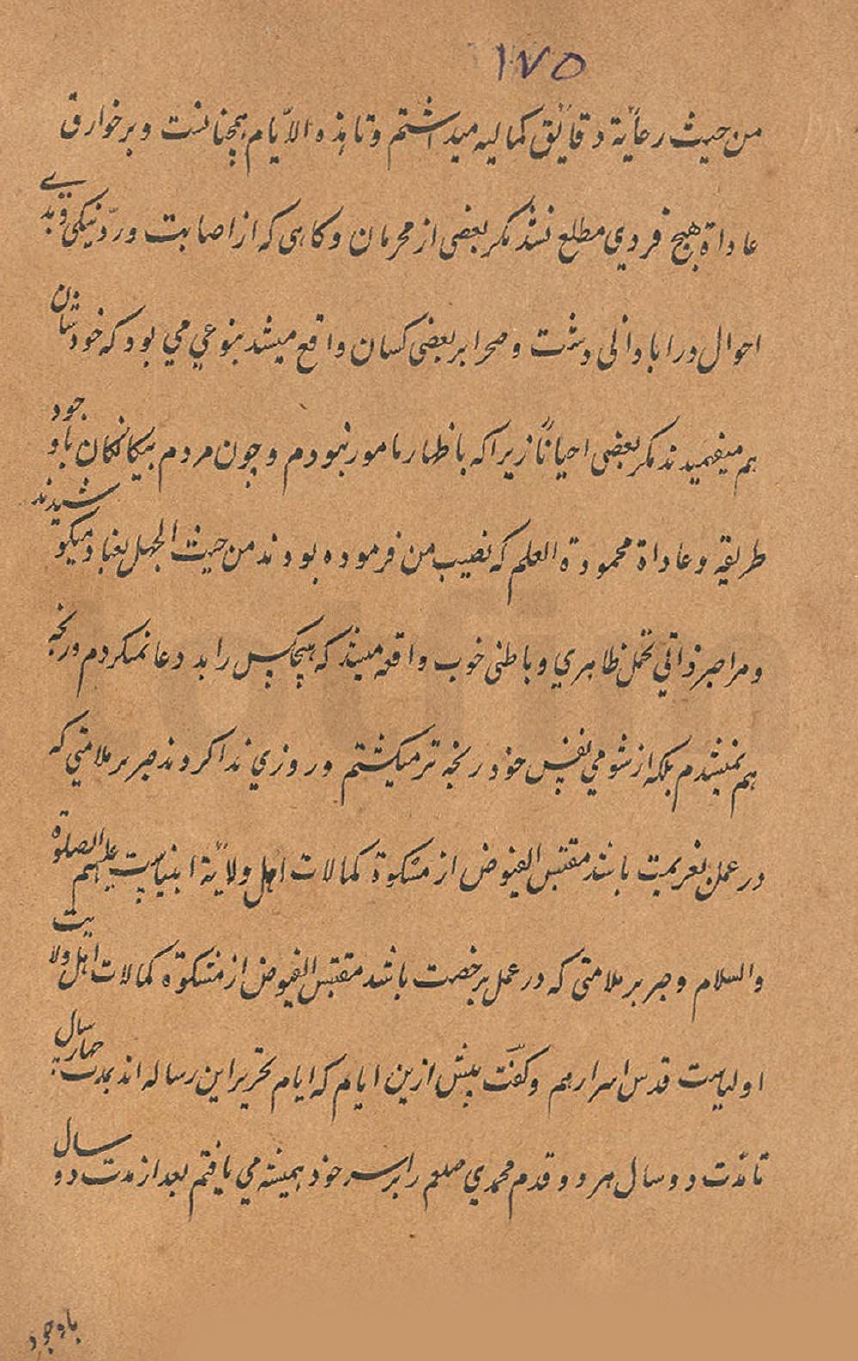 ١٧٥
من حیث رعایة دقایق کمالیه میداشتم و تا هذه الایام همچنانست و بر خوارق
عاداة هیچ فردي مطلع نشد مکر بعضی از محرمان و کاهی که از اصابت و ردّ نیکی و بدیے
احوال ورا بادانی دشت و صحرا بر بعضی کسان واقع میشد بنوعي مي بود که خودشان
هم میفهمیدند مکر بعضی احیاناً زیرا که باظهار مامور نبودم و چون مردم بیکانکان باوجود
طریقه و عاداة محمودة العلم که نصیب من فرموده بودند من حیث الجهل بعناد میکوشیدند
و مرا صبر ذاتي تحمل ظاهري و باطنی خوب واقعه میشد که هیچکس را بد دعا نمیکردم و رنجه
هم نمیشدم بلکه از شومي نفس خود رنجه تر میکشتم و روزي ندا کردند صبر بر ملامتي که
در عمل بعزیمت باشد مقتبس الفیوض از مشکوة کمالات اهل ولایة انبیاست علیهم الصلوة
والسلام و صبر بر ملامتی که در عمل برخصت باشد مقتبس الفیوض از مشکوة کمالات اهل ولایت
اولیاست قدس اسرارهم و کفت پیش ازین ایام که ایام تحریر این رساله اند بمدت چهار سال
تا مدّت دو سال هر دو قدم محمدي صلعم را بر سر خود همیشه مي یافتم بعد از مدت دو سال
باوجود